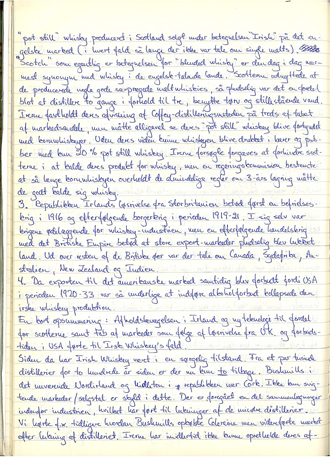 "pot still" whisky produceret i Scotland solgt under betegnelsen 'Irish' på det en-
gelske marked (i hvert fald så længe der ikke var tale om single malts)
"Scotch" som egentlig er betegnelsen for "blended whisky" er den dag i dag nær-
mest synonym med whisky i de engelsk-talende lande. Scotterne udnyttede at
de producerede nogle gode særprægede maltwhiskies, så pludselig var det en fordel
blot at distillere to gange i forhold til tre, benytte tørv og stille stående vand.
Irerne fastholdt deres afvisning af Coffey-distilleringsmetoden på trods af tabet
af markedsandele, men måtte alligevel se deres "pot still" whisky blive fortyndet
med kornwhiskyer. Uden deres viden kunne whiskyen blive drukket i barer og pub-
ber med kun 20 % pot still whisky. Irerne forsøgte forgæves at forhindre scot-
terne i at kalde deres produkt for whisky, men en regeringskommission bestemte
at så længe kornwhiskyen overholdt de almindelige regler om 3-års lagring måtte
de godt kalde sig whisky.
3. Republikken Irlands løsrivelse fra Storbritannien betød først en befrielses-
krig i 1916 og efterfølgende borgerkrig i perioden 1919-21. I sig selv var
krigene ødelæggende for whisky-industrien, men en efterfølgende handelskrig
med det Britiske Empire betød at store export-markeder pludselig blev lukket
land. Ud over resten af de Britiske øer var der tale om Canada, Sydafrika, Au-
stralien, New Zealand og Indien.
4. Da exporten til det amerikanske marked samtidig blev forbudt fordi USA
i perioden 1920-33 var så underlige at indføre alkoholforbud kollapsede den
irske whiskey produktion.
En kort opsummering: Afholdsbevægelsen i Irland og ny teknologi til fordel
for scotterne samt tab af markeder som følge af løsrivelse fra U.K. og forbuds-
tiden i USA førte til Irish Whiskey's fald.
Siden da har Irish Whiskey været i en sørgelig tilstand. Fra et par tusinde
distillerier for to hundrede år siden er der nu kun to tilbage. Bushmills i
det nuværende Nordirland og Midleton i republikken nær Cork. Ikke kun svig-
tende markeder/salgstal er skyld i dette. Der er foregået en del sammenlægninger
indenfor industrien, hvilket har ført til lukninger af de mindre distillerier.
Vi hørte f.x. tidligere hvordan Bushmills opkøbte Coleraine men videreførte mærket
efter lukning af distilleriet. Irerne har imidlertid ikke kunne opretholde deres af-